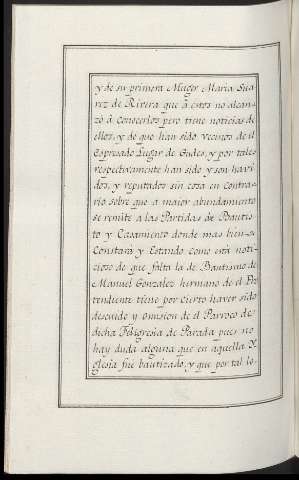 y de su primera Muger Maria Sua
rez de Rivera que â estos no alcan-
zó â conocerlos pero tiene noticias de
ellos, y de que han sido vecinos de el
Expresado Lugar de Gudes, y por tales
respectivamente han sido y son havi
dos, y reputados sin cosa en contra-
rio sobre que a maior abundamiento
se remite a las Partidas de Bautis-
to y Casamiento donde mas bien
Constará y Estando como está noti-
cioso de que falta la de Bautismo de
Manuel Gonzalez hermano de el Pre
tendiente tiene por cierto haver sido
descuido y omision de el Parroco de
dicha Feligresia de Parada pues no
hay duda alguna que en aquella Y
glesia fue bautizado, y que por tal lo-